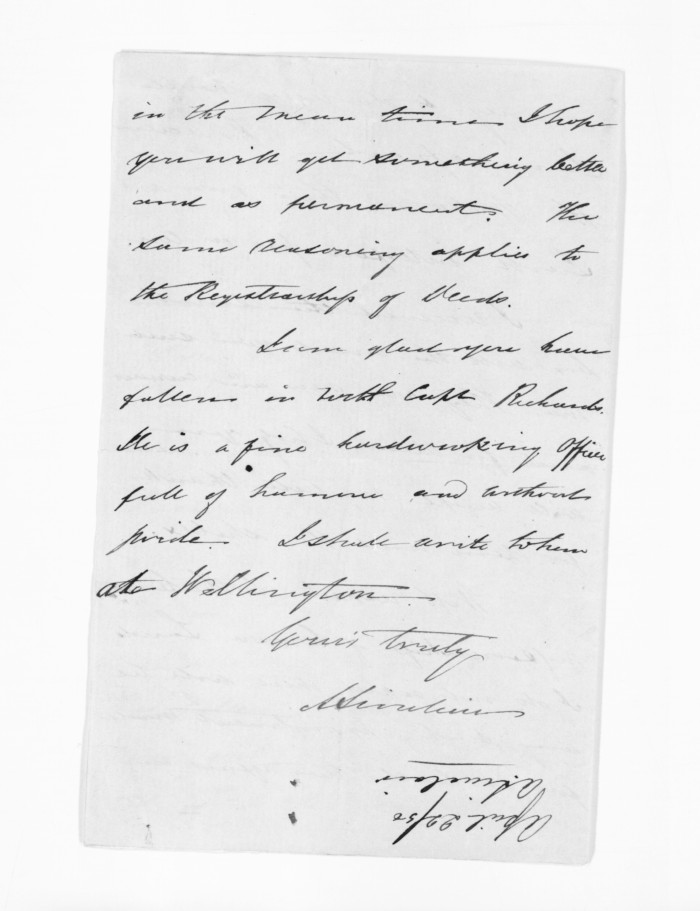 in the mean time I hope
you will get something better
and as permanent. The
same reasoning applies to
the Registrarship of Deeds.
I am glad you have
fallen in with Capt Richards.
He is a fine hardworking Officer
full of humour and without
pride. I shall write to him
at Wellington
Yours truly
A Sinclair
A Sinclair
April 22/50